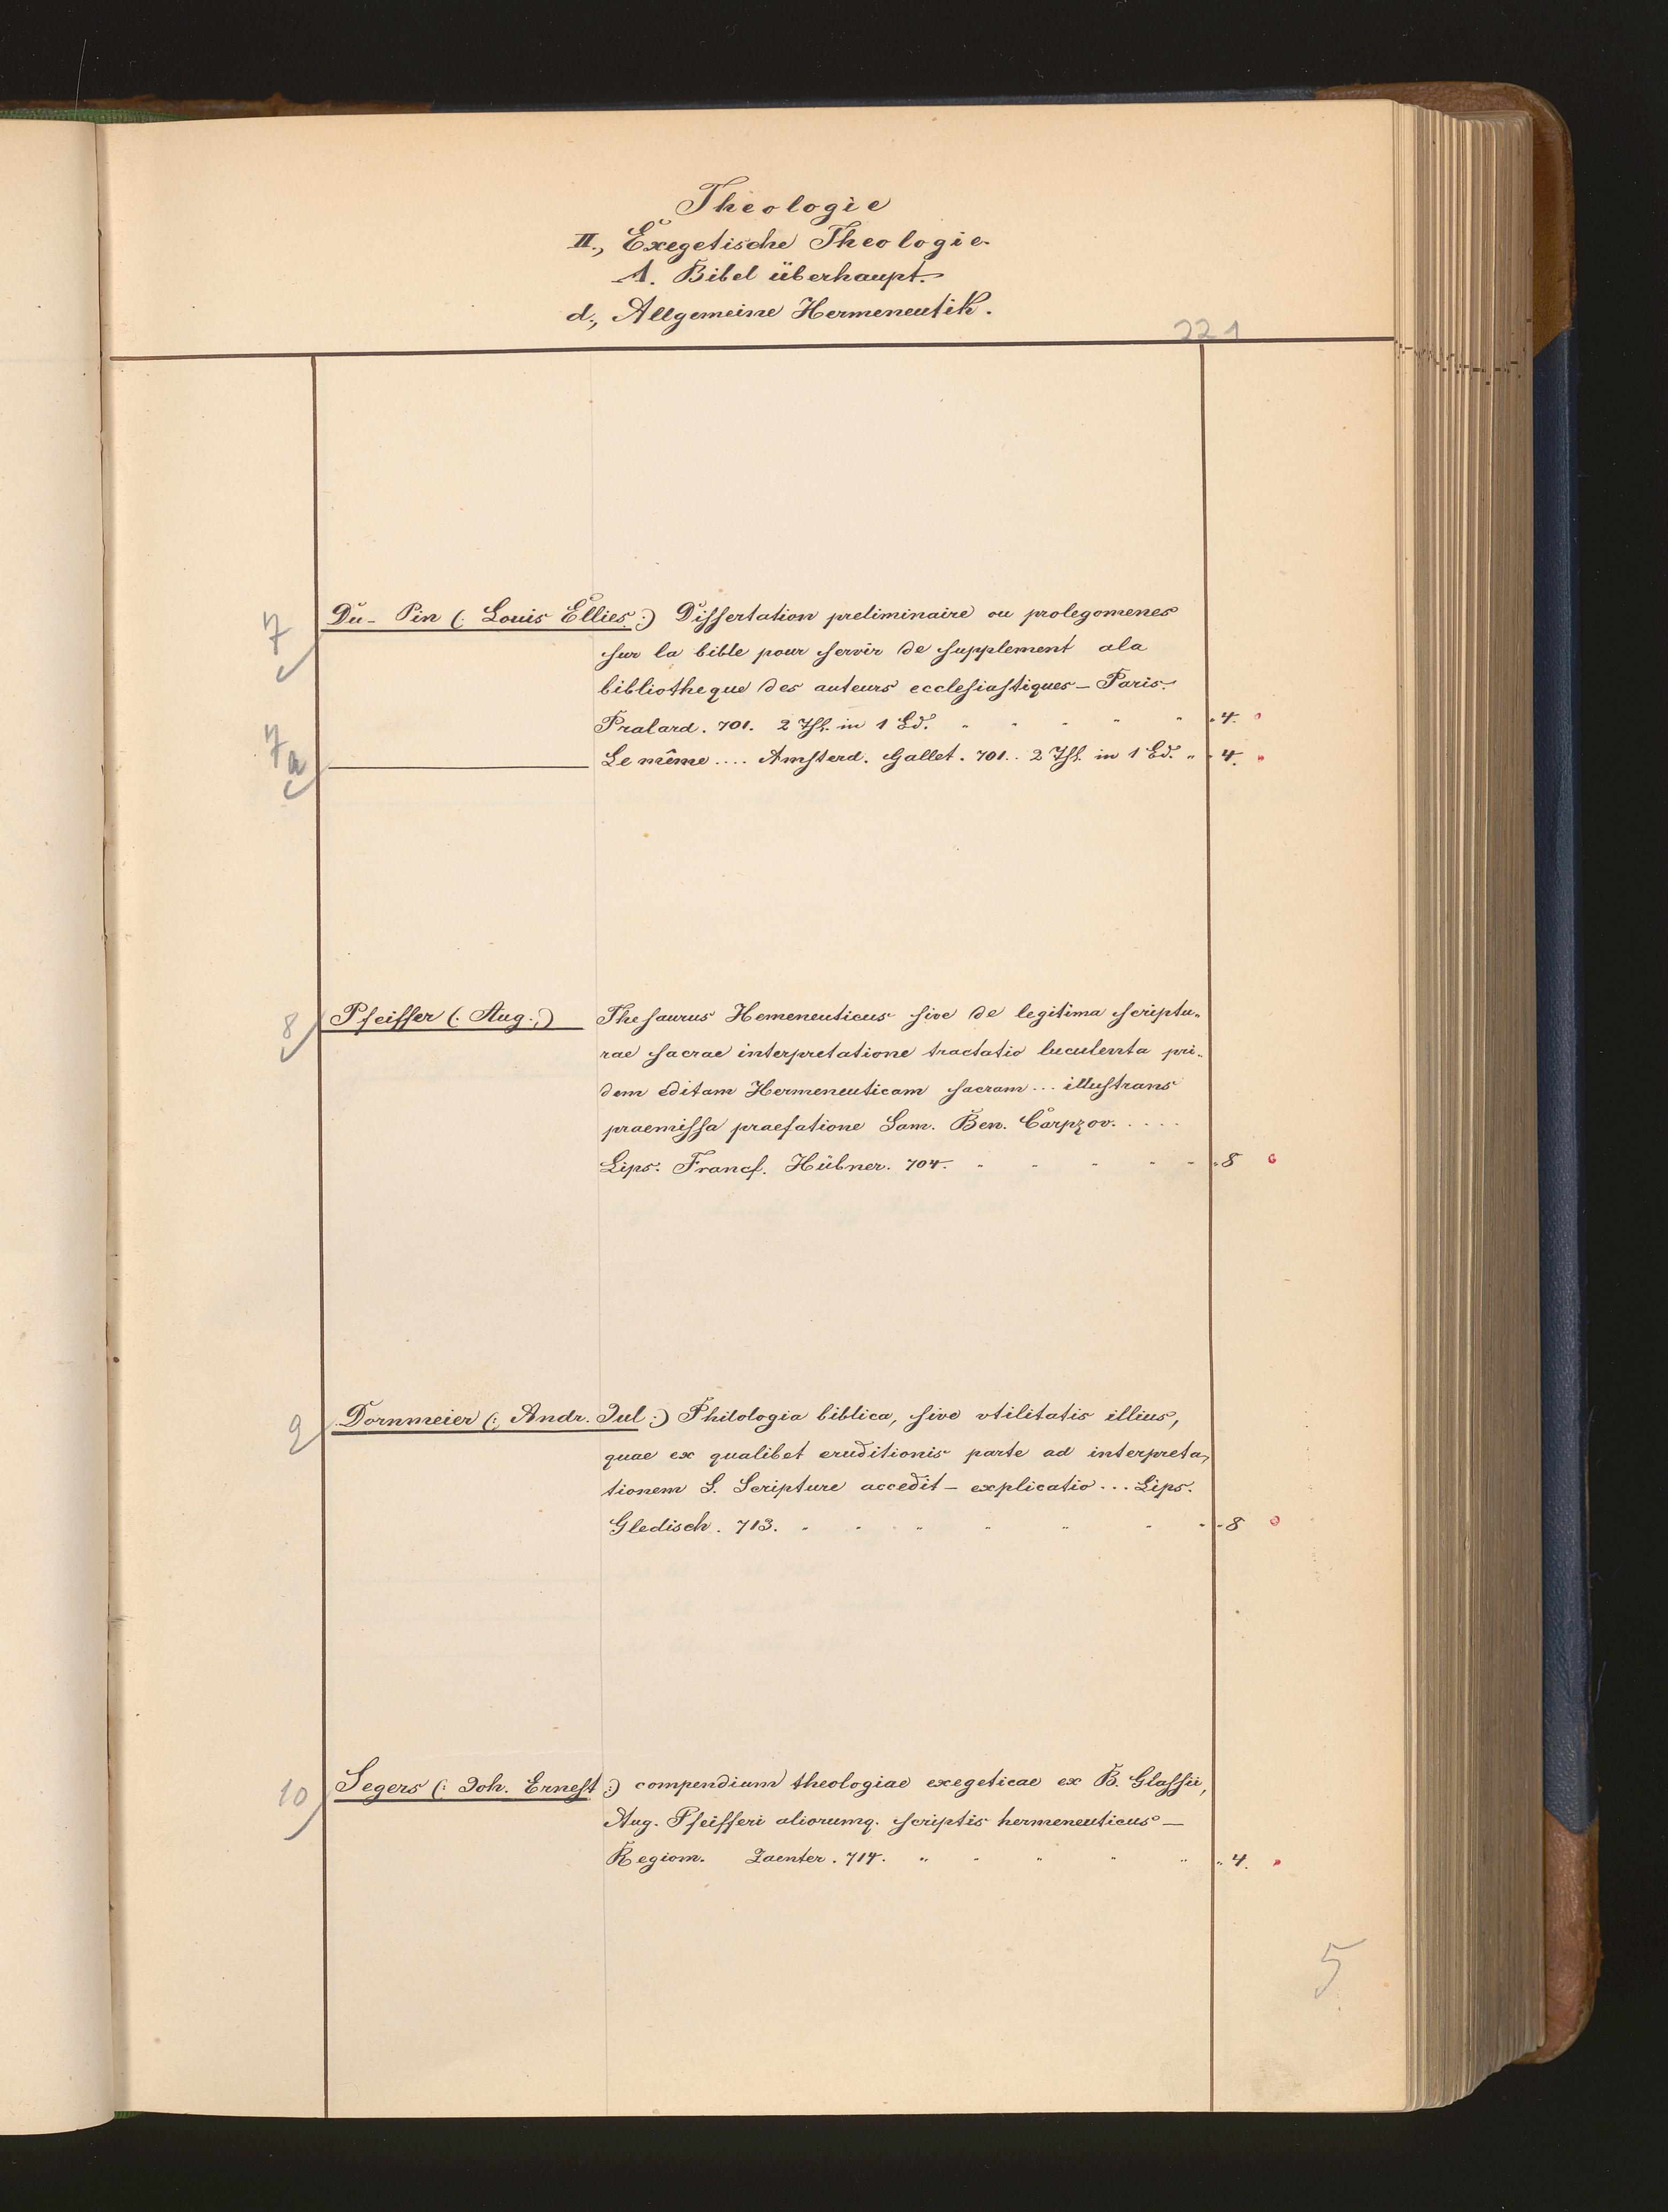 Theologie
II., Exegetische Theologie.
1. Bibel überhaupt.
d., Allgemeine Hermeneutik.
221
7 Du-Pin (: Louis Ellies :) Dissertation preliminaire ou prolegomenes
sur la bible pour servir de supplement ala
bibliotheque des auteurs ecclesiastiques – Paris.
Pralard. 701. 2 Thl. in 1 Bd. " " " " " " 4.
7a Le même .... Amsterd. Gallet. 701.. 2 Thl. in 1 Bd. " " 4.
8 Pfeiffer (: Aug. :) Thesaurus Hemeneuticus sive de legitima scriptu-
rae sacrae interpretatione tractatio luculenta pri-
dem editam Hermeneuticam sacram ... illustrans
praemissa praefatione Sam. Ben. Carpzov. ....
Lips. Francf. Hübner. 704. " " " " " " 8
9 Dornmeier (: Andr. Jul :) Philologia biblica, sive vtilitatis illius,
quae ex qualibet eruditionis parte ad interpreta-
tionem S. Scripture accedit – explicatio ... Lips.
Gledisch. 713. " " " " " " " " 8
10 Segers (: Joh. Ernest :) compendium theologiae exegeticae ex B. Glassii,
Aug. Pfeifferi aliorumq. scriptis hermeneuticus –
Regiom. Zaenter. 714. " " " " " " 4.
5